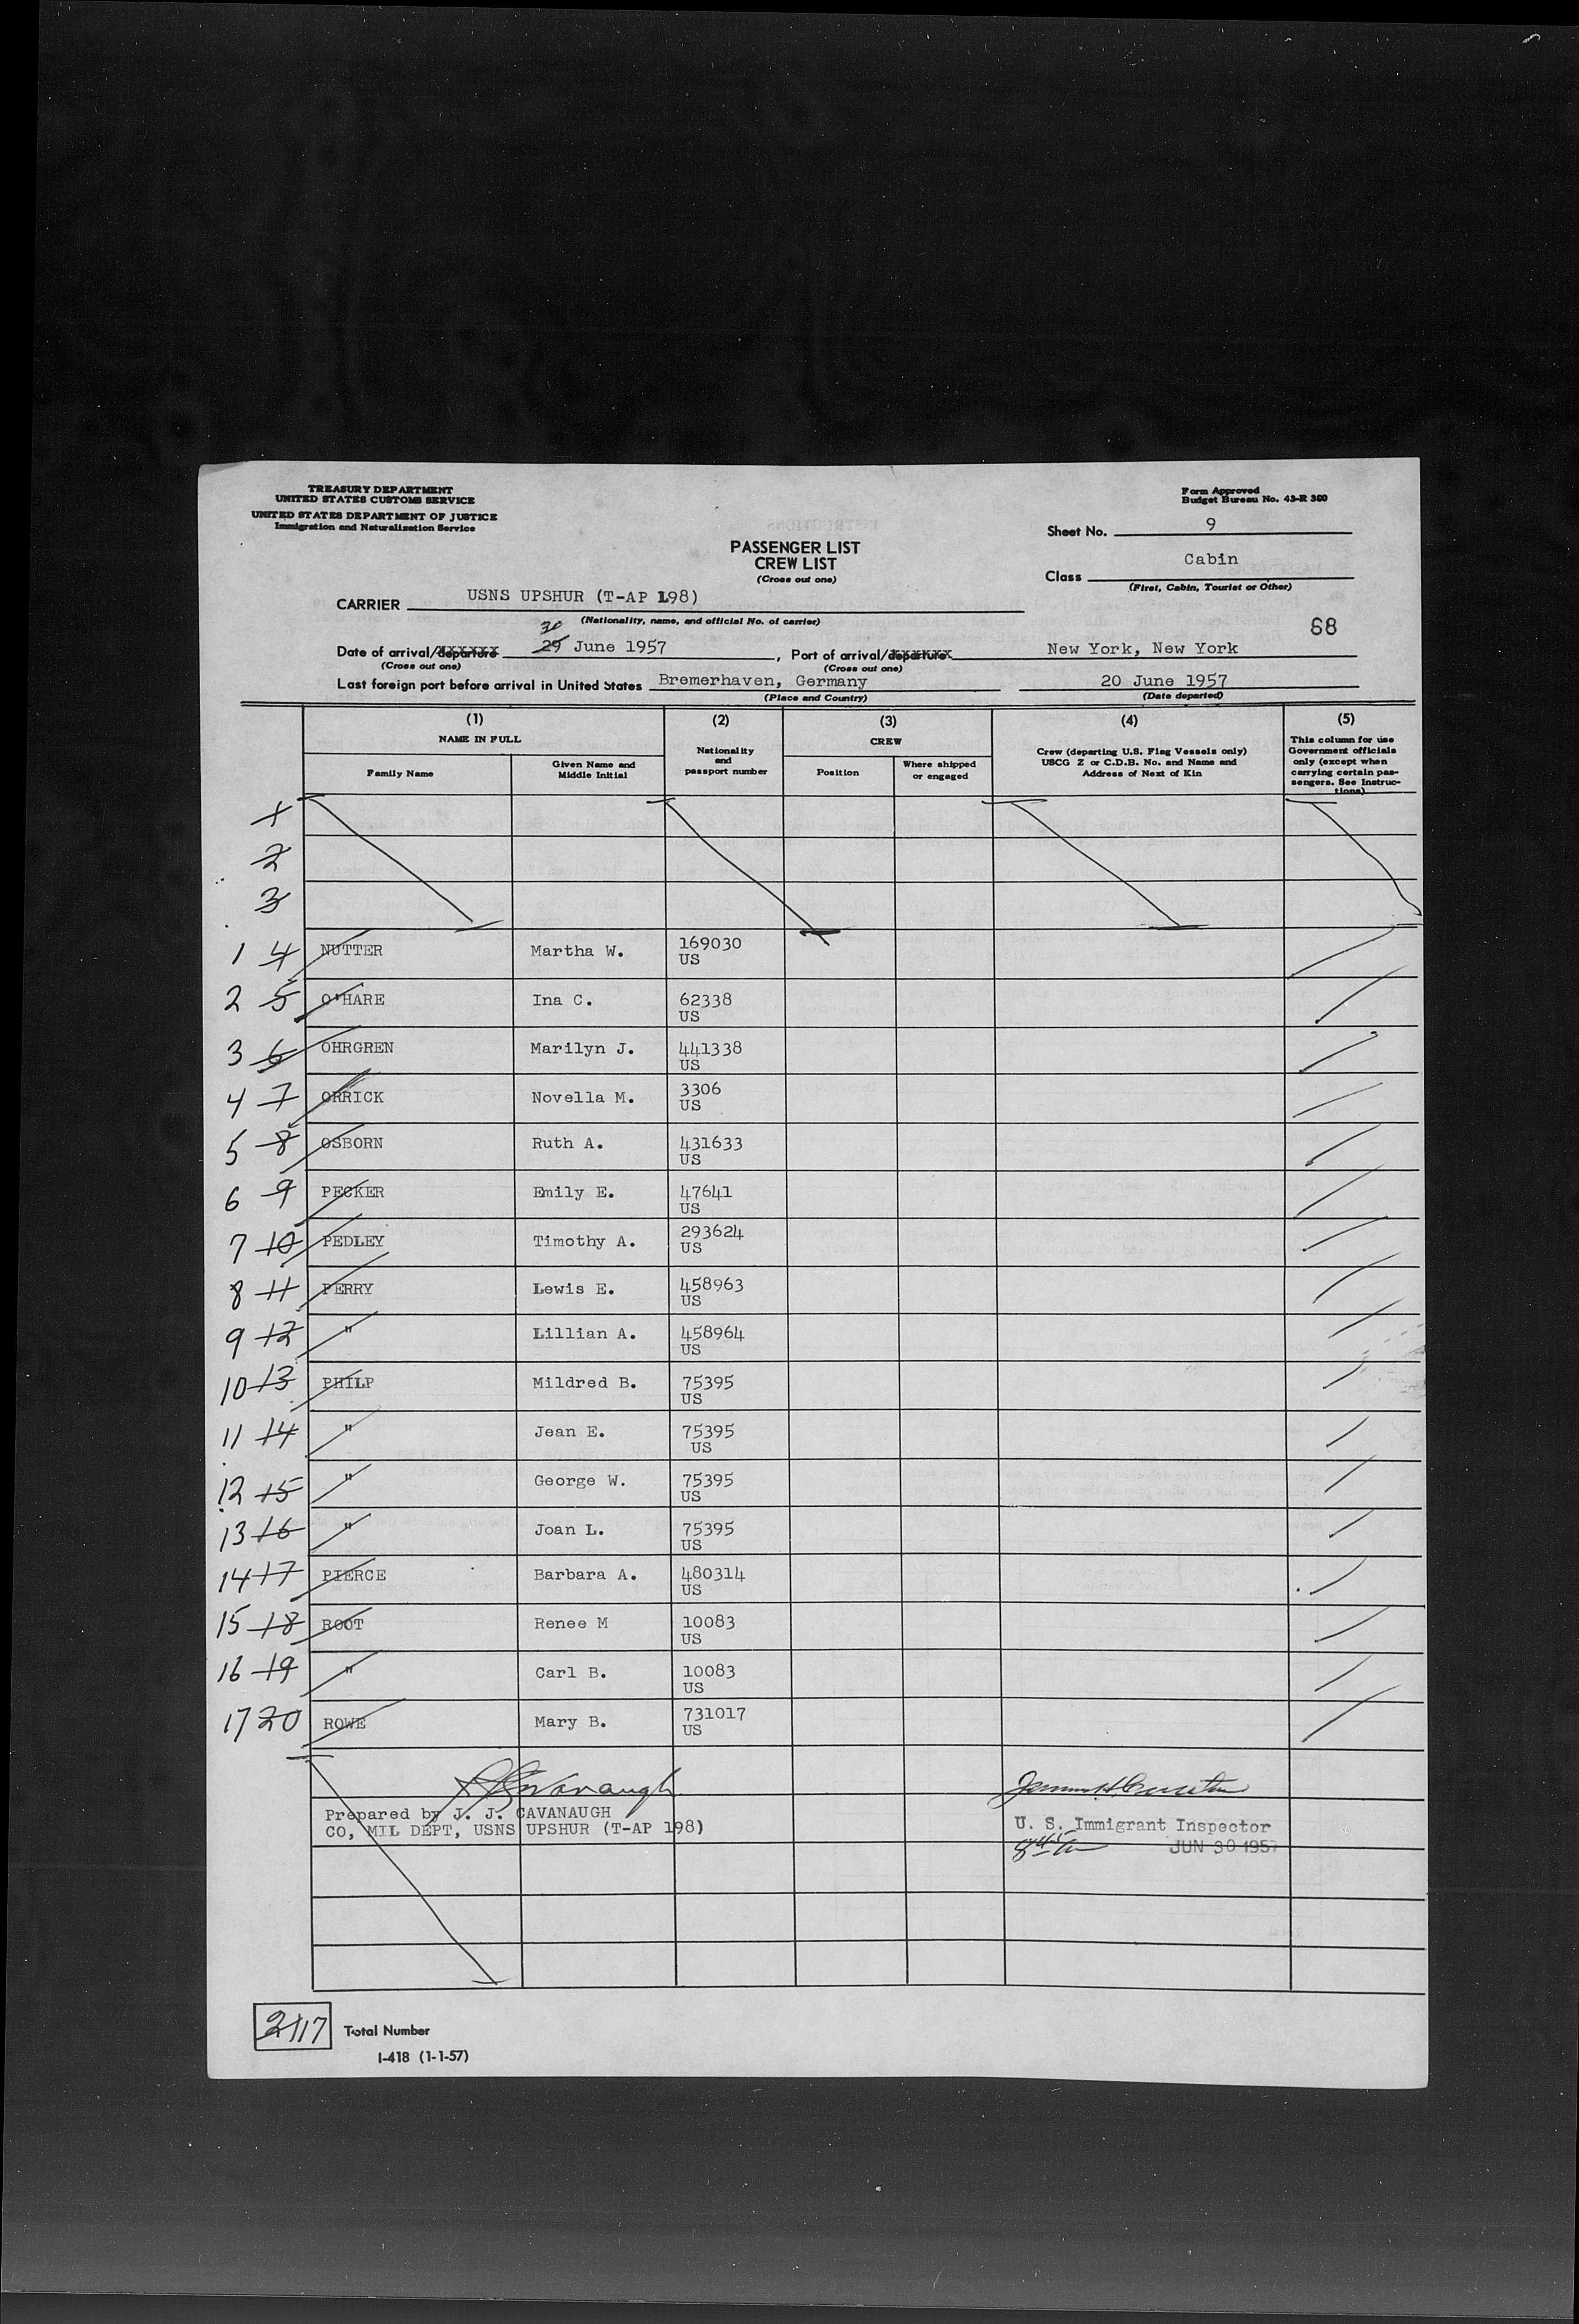 TREASURY DEPARTMENT
UNITED STATES CUSTOMS SERVICE
UNITED STATES DEPARTMENT OF JUSTICE
Immigration and Naturalization Service
Form Approved
Budget Bureau No. 43-R 380
Sheet No. 9
PASSENGER LIST
CREW LIST
(Cross out one)
Class Cabin
(First, Cabin, Tourist or Other)
CARRIER USNS UPSHUR (T-AP 198)
(Nationality, name, and official No. of carrier)
68
30
Date of arrival/departure 29 June 1957, Port of arrival/departure New York, New York
(Cross out one) (Cross out one)
Last foreign port before arrival in United States Bremerhaven, Germany 20 June 1957
(Place and Country) (Date departed)
(1) (2) (3) (4) (5)
NAME IN FULL
Family Name
Given Name and Middle Initial
Nationality and passport number
CREW
Position
Where shipped or engaged
Crew (departing U.S. Flag Vessels only)
USCG Z or C.D.B. No. and Name and
Address of Next of Kin
This column for use
Government officials
only (except when
carrying certain pas-
sengers. See Instruc-
tions)
1
2
3
1 4 NUTTER Martha W. 169030 US
2 5 O'HARE Ina C. 62338 US
3 6 OHRGREN Marilyn J. 441338 US
4 7 ORRICK Novella M. 3306 US
5 8 OSBORN Ruth A. 431633 US
6 9 PECKER Emily E. 47641 US
7 10 PEDLEY Timothy A. 293624 US
8 11 PERRY Lewis E. 458963 US
9 12 " Lillian A. 458964 US
10 13 PHILP Mildred B. 75395 US
11 14 " Jean E. 75395 US
12 15 " George W. 75395 US
13 16 " Joan L. 75395 US
14 17 PIERCE Barbara A. 480314 US
15 18 ROOT Renee M 10083 US
16 19 " Carl B. 10083 US
17 20 ROWE Mary B. 731017 US
Prepared by J. J. CAVANAUGH
CO, MIL DEPT, USNS UPSHUR (T-AP 198)
U. S. Immigrant Inspector
JUN 30 1957
17 Total Number
I-418 (1-1-57)